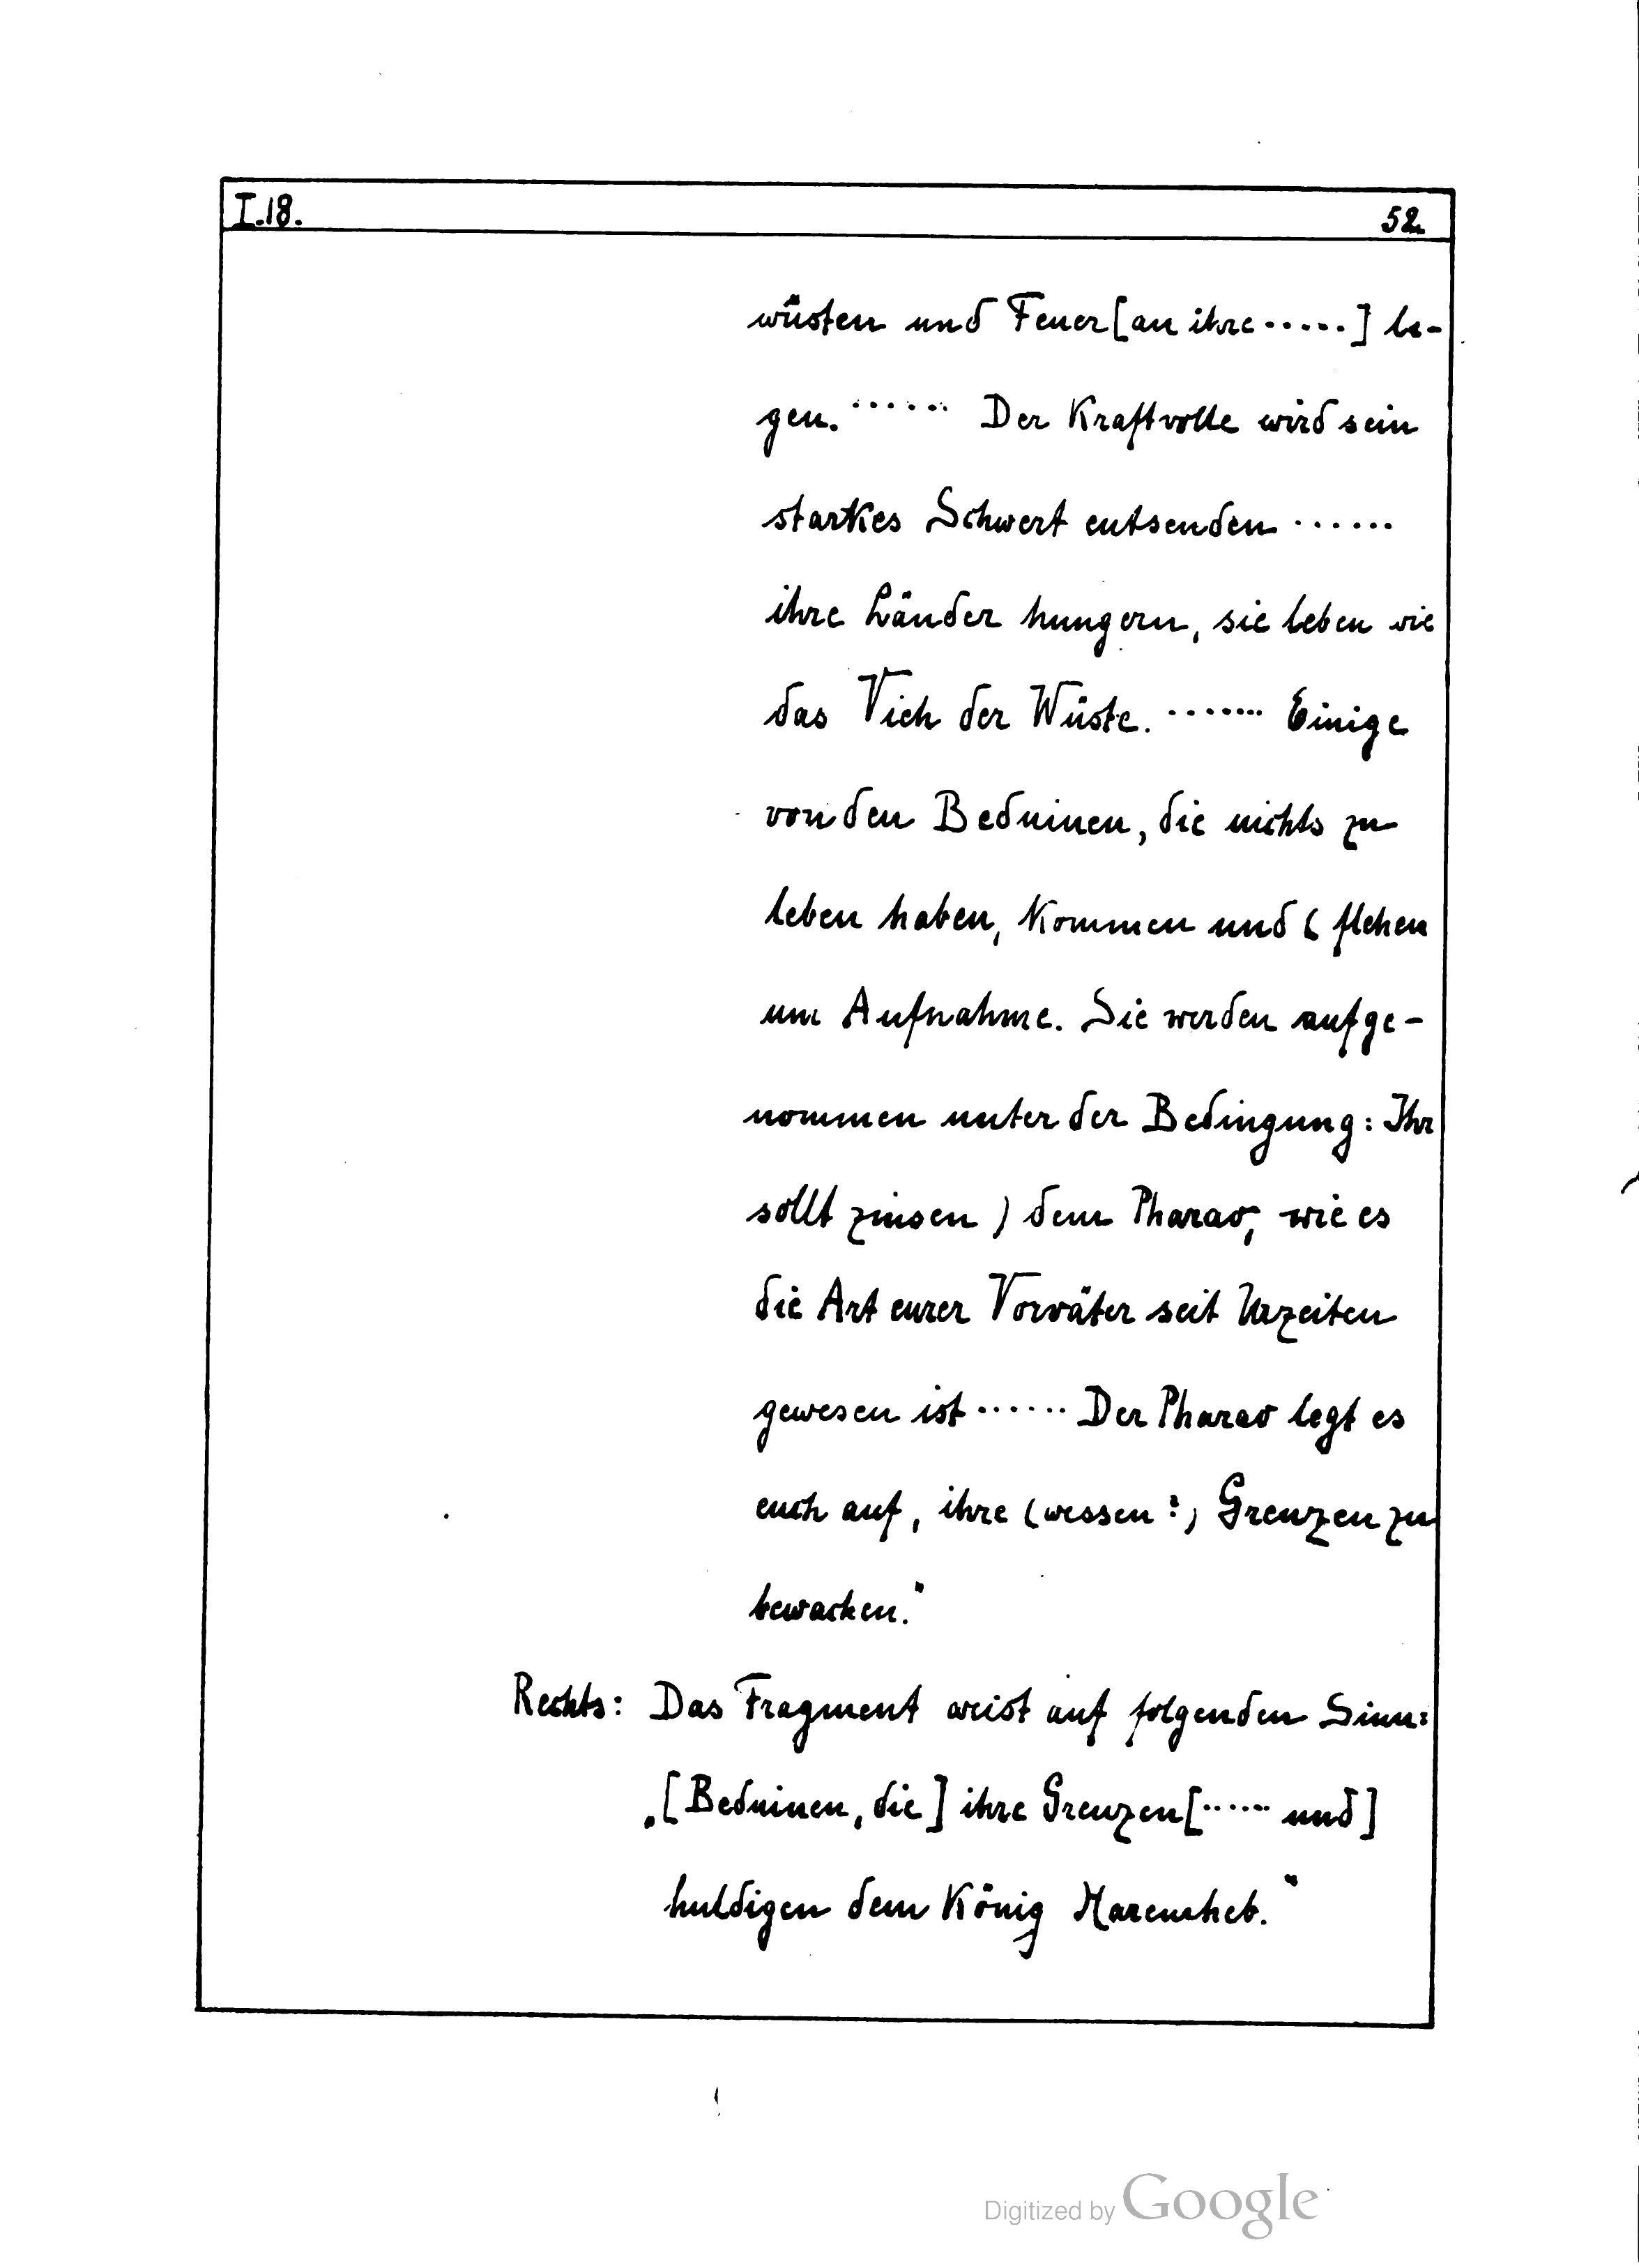 I.18.
52.
wüsten und Feuer [an ihre ......] le-
gen. ...... Der Kraftvolle wird sein
starkes Schwert entsenden ......
ihre Länder hungern, sie leben wie
das Vieh der Wüste. ....... Einige
von den Beduinen, die nichts zu
leben haben, kommen und ( flehen
um Aufnahme. Sie werden aufge-
nommen unter der Bedingung: Ihr
sollt zinsen ) dem Pharao, wie es
die Art eurer Vorväter seit Urzeiten
gewesen ist ...... Der Pharao legt es
euch auf, ihre (wessen?) Grenzen zu
bewachen."
Rechts: Das Fragment weist auf folgenden Sinn:
„[Beduinen, die] ihre Grenzen [...... und]
huldigen dem König Haremheb."
Digitized by Google